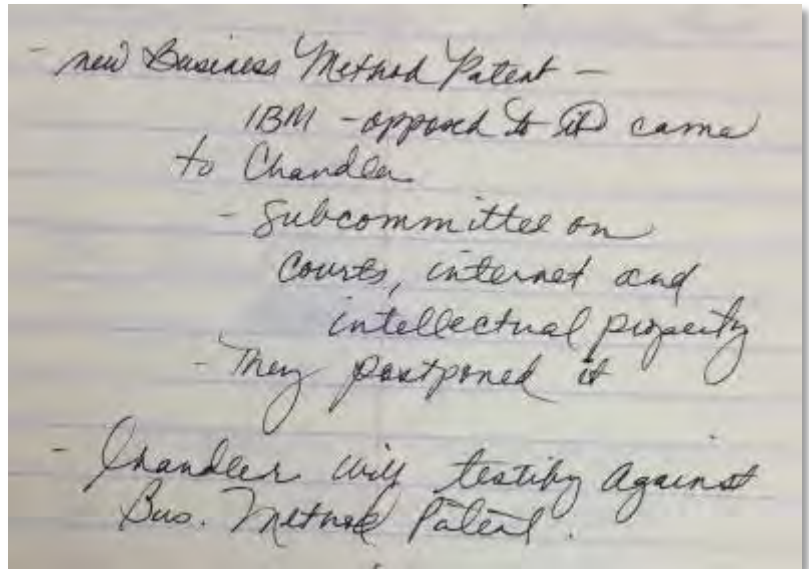 - new Business Method Patent -
IBM - opposed to it came
to Chandler
- Subcommittee on
Courts, internet and
intellectual property
- They postponed it
- Chandler will testify against
Bus. Method Patent.